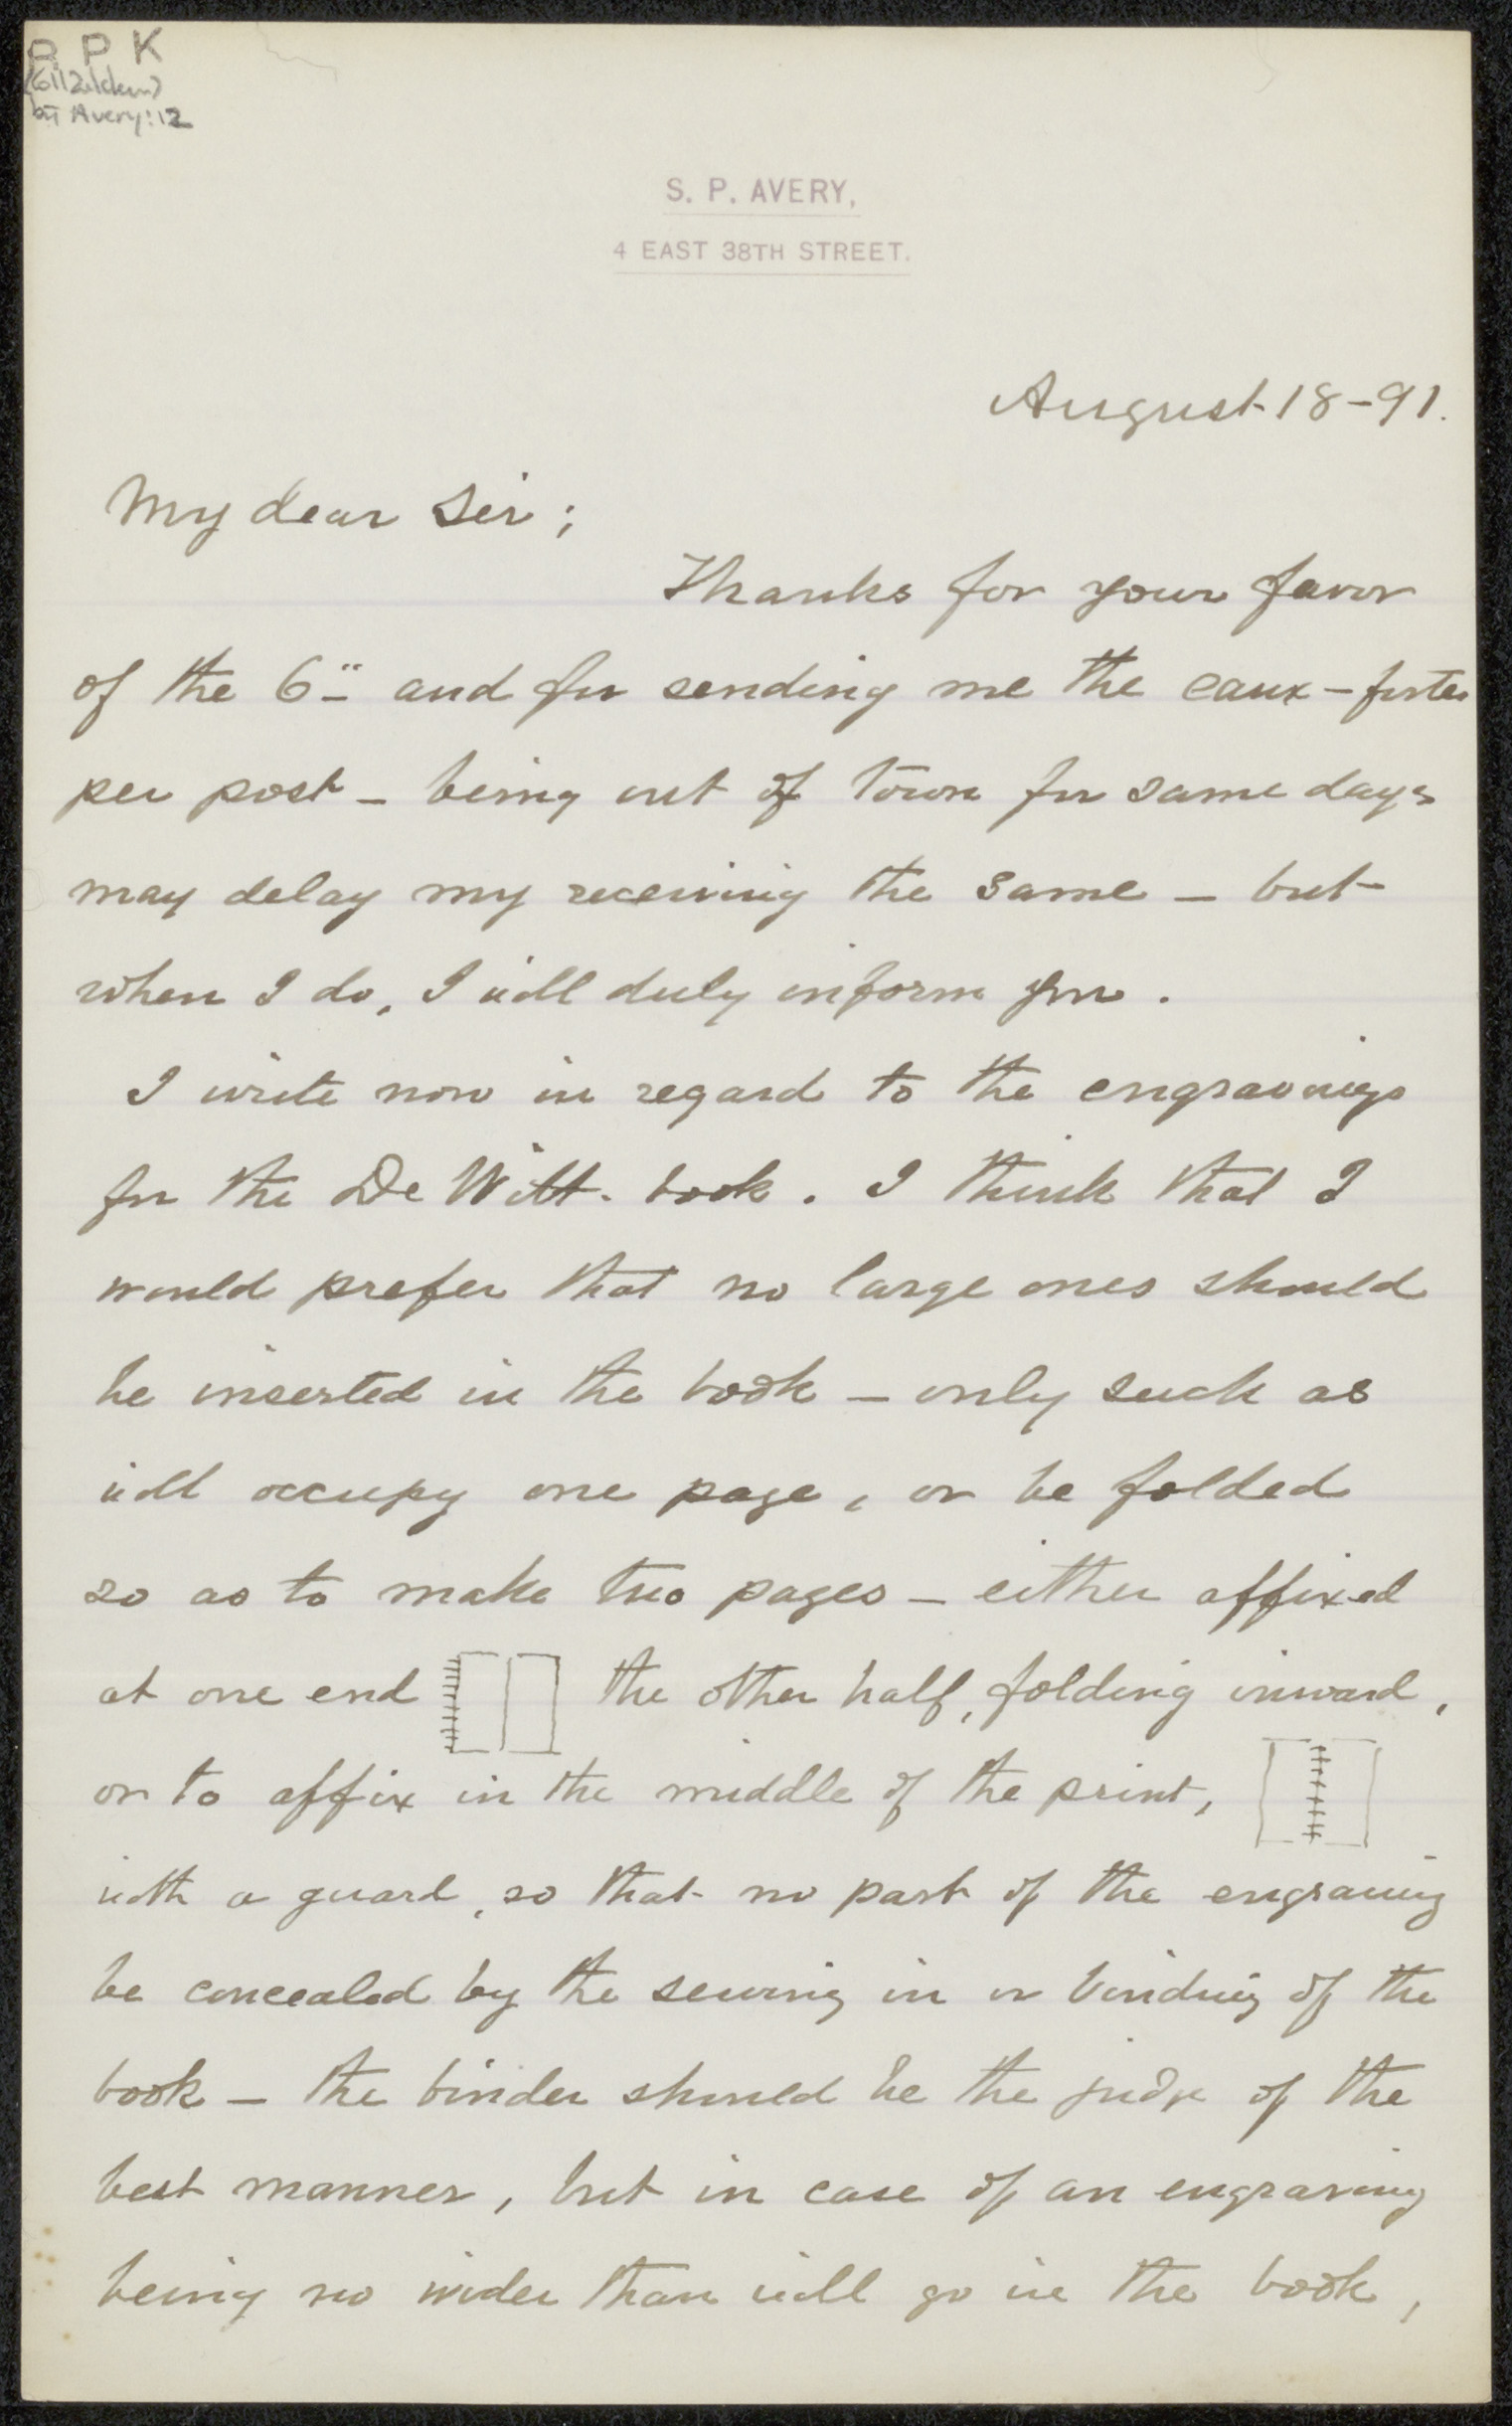 P P K
bij Avery: 12
S. P. AVERY,
4 EAST 38TH STREET.
August 18-91.
My dear Sir;
Thanks for your favor
of the 6" and for sending me the eaux-fortes
per post - being out of town for some days
may delay my receiving the same - but
when I do, I will duly inform you.
I write now in regard to the engravings
for the De Witt book. I think that I
would prefer that no large ones should
be inserted in the book - only such as
will occupy one page, or be folded
so as to make two pages - either affixed
at one end the other half, folding inward,
or to affix in the middle of the print,
with a guard, so that no part of the engraving
be concealed by the sewing in or binding of the
book - the binder should be the judge of the
best manner, but in case of an engraving
being no wider than will go in the book,